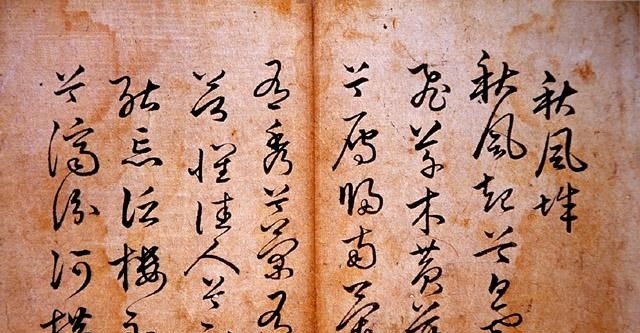 秋風辭
秋風起兮白雲
飛草木黃落
兮鴈歸南蘭
有秀兮菊有
芳懷佳人兮不
能忘泛樓船
兮濟汾河橫